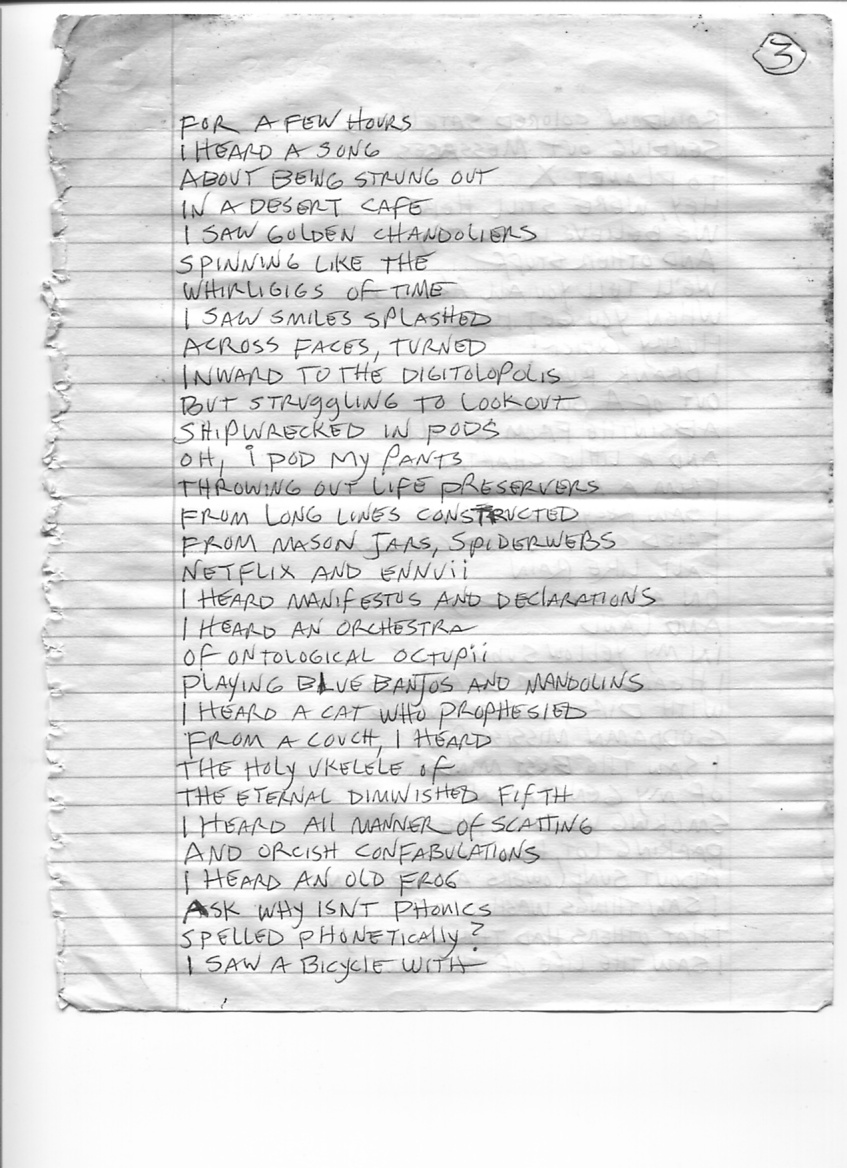 3
FOR A FEW HOURS
I HEARD A SONG
ABOUT BEING STRUNG OUT
IN A DESERT CAFE
I SAW GOLDEN CHANDOLIERS
SPINNING LIKE THE
WHIRLIGIGS OF TIME
I SAW SMILES SPLASHED
ACROSS FACES, TURNED
INWARD TO THE DIGITOLOPOLIS
BUT STRUGGLING TO LOOK OUT
SHIPWRECKED IN PODS
OH, I POD MY PANTS
THROWING OUT LIFE PRESERVERS
FROM LONG LINES CONSTRUCTED
FROM MASON JARS, SPIDERWEBS
NETFLIX AND ENNVII
I HEARD MANIFESTOS AND DECLARATIONS
I HEARD AN ORCHESTRA
OF ONTOLOGICAL OCTUPII
PLAYING BLUE BANJOS AND MANDOLINS
I HEARD A CAT WHO PROPHESIED
FROM A COUCH, I HEARD
THE HOLY UKELELE OF
THE ETERNAL DIMINISHED FIFTH
I HEARD ALL MANNER OF SCATTING
AND ORCISH CONFABULATIONS
I HEARD AN OLD FROG
ASK WHY ISNT PHONICS
SPELLED PHONETICALLY?
I SAW A BICYCLE WITH